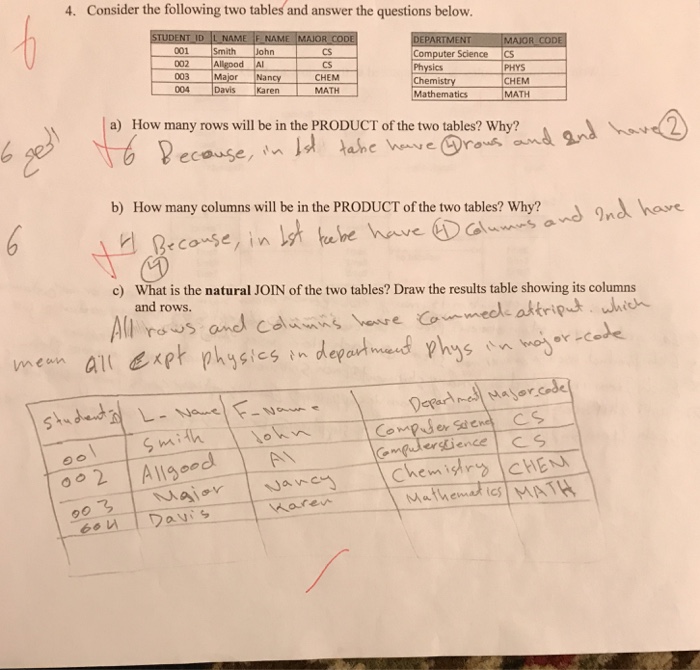 4. Consider the following two tables and answer the questions below.
STUDENT_ID L_NAME F_NAME MAJOR_CODE
001 Smith John CS
002 Allgood Al CS
003 Major Nancy CHEM
004 Davis Karen MATH
DEPARTMENT MAJOR_CODE
Computer Science CS
Physics PHYS
Chemistry CHEM
Mathematics MATH
6
a) How many rows will be in the PRODUCT of the two tables? Why?
6
6 Because, in 1st tabe have 4 rows and 2nd have 2
b) How many columns will be in the PRODUCT of the two tables? Why?
6
4 Because, in 1st have 4 Columns and 2nd have
4
c) What is the natural JOIN of the two tables? Draw the results table showing its columns
and rows.
All rows and columns have attriput. which
mean all expt physics in department phys in major-code
L-Name F-Name Major code
001 Smith John CS
002 Allgood Al CS
003 Major Nancy Chemistry CHEM
004 Davis Karen Mathematics MATH